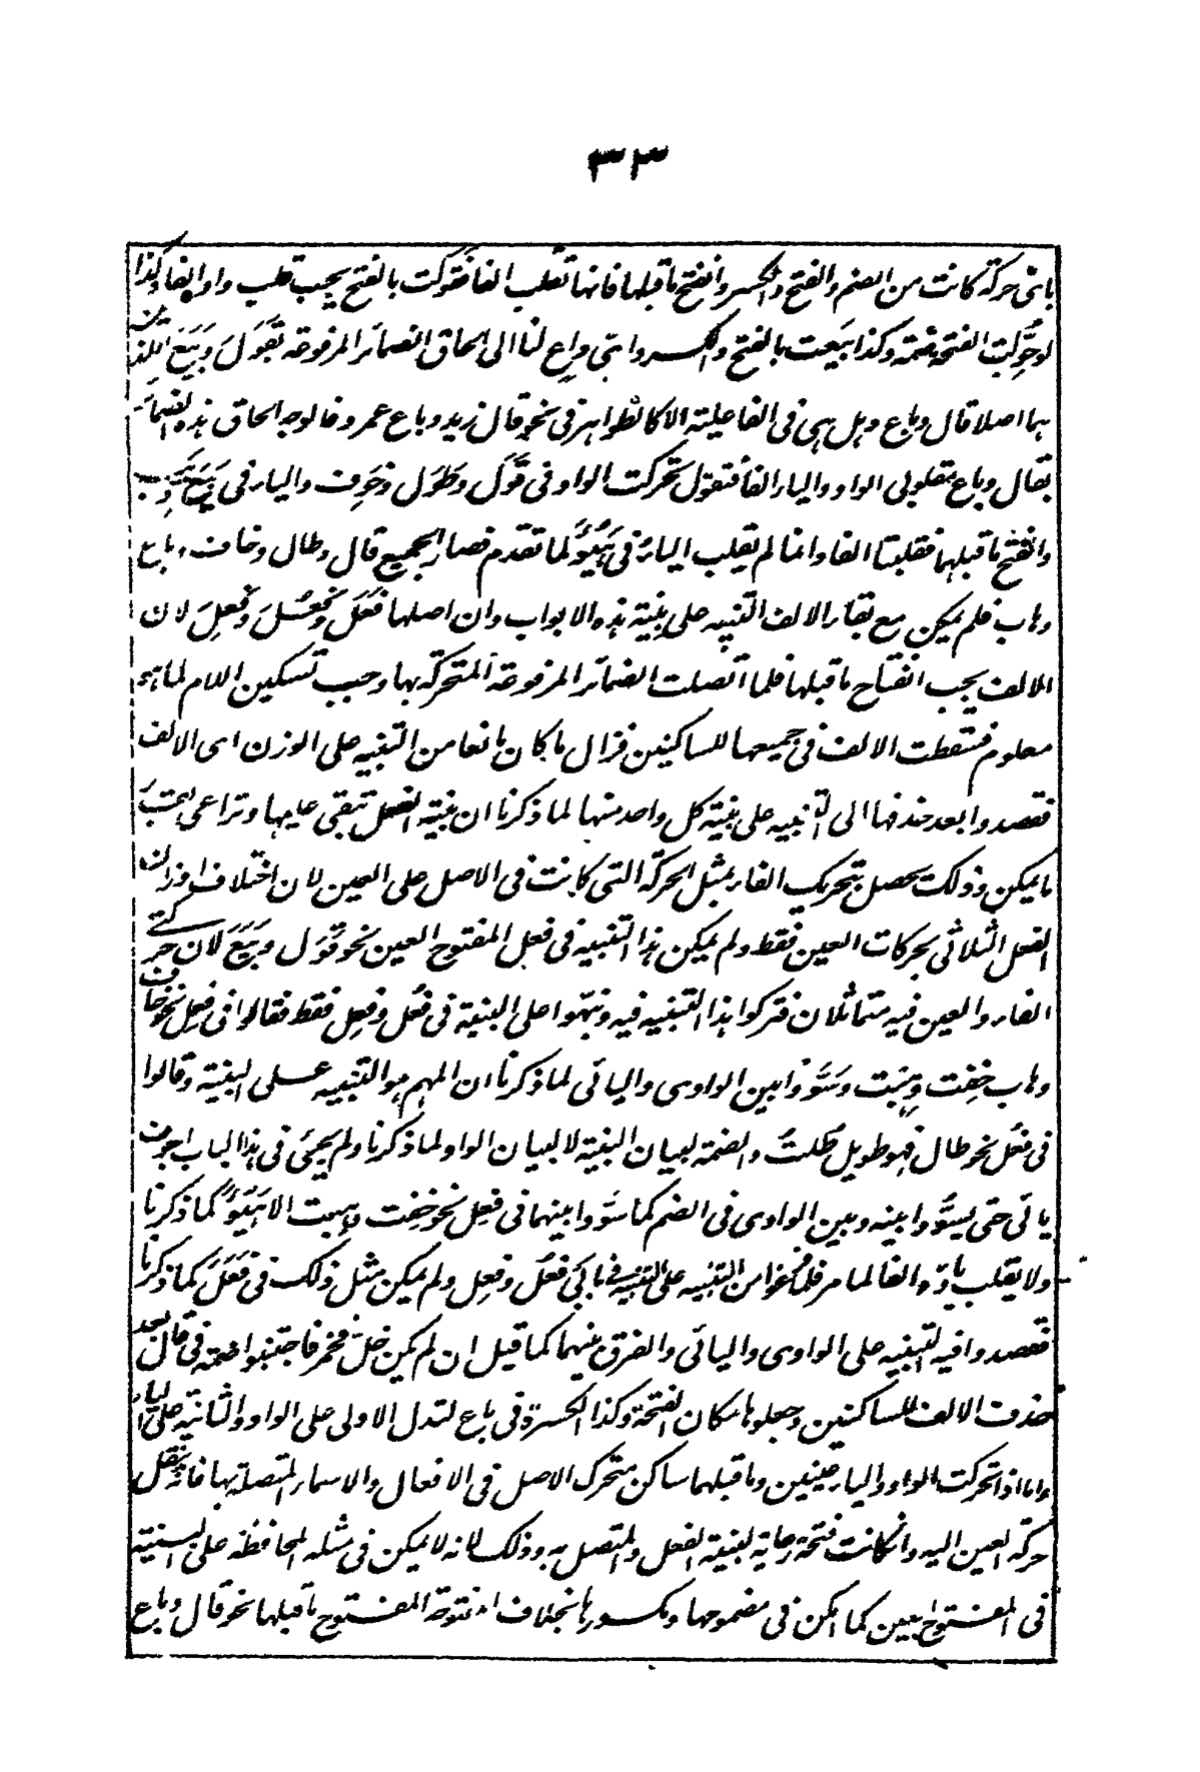 ٣٣
باى حركة كانت من الضم والفتح والكسر وانفتح ماقبلها فانها تقلب الفا فقوكت بالفتح يجب قلب واو الفا وكذا
لو حولت الفتحة ضمة وكذا بيعت بالفتح والكسر وابقى واع لنا الى الحاق الضمائر المرفوعة بقول وبيع اللذين
هما اصلا قال وباع وهل هى فى الفاعلية الا كالظواهر فى نحو قال زيد وباع عمرو فالوجه الحاق هذه الضمائر
بقال وباع مقلوبى الواو والياء الفا فتقول تحركت الواو فى قول وطول وخوف والياء فى بيع وهيب
وانفتح ماقبلهما فقلبتا الفا وانما لم يقلب الياء فى هيؤ لما تقدم فصار الجميع قال وطال وخاف وباع
وهاب فلم يمكن مع بقاء الالف التنبيه على بنية هذه الابواب وان اصلها فعل وفعل وفعل لان
الالف يجب انفتاح ماقبلها فلما اتصلت الضمائر المرفوعة المتحركة بها وجب تسكين اللام لما هو
معلوم فسقطت الالف فى جميعها للساكنين فزال ما كان مانعا من التنبيه على الوزن اى الالف
فقصدوا بعد حذفها الى التنبيه على بنية كل واحد منها لما ذكرنا ان بنية الفعل تبقى عليها وتراعى بقدر
ما يمكن وذلك يحصل بتحريك الفاء بمثل الحركة التى كانت فى الاصل على العين لان اختلاف اوزان
الفعل الثلاثى بحركات العين فقط ولم يمكن هذا التنبيه فى فعل المفتوح العين نحو قول وبيع لان حركتى
الفاء والعين فيه متماثلان فتركوا هذا التنبيه فيه ونبهوا على البنية فى فعل وفعل فقط فقالوا فى فعل نحو خاف
وهاب خفت وهبت وسووا بين الواوى واليائى لما ذكرنا ان المهم هو التنبيه على البنية وقالوا
فى فعل نحو طال فهو طويل طلت والضمة لبيان البنية لا لبيان الواو لما ذكرنا ولم يجئ فى هذا الباب اجوف
يائى حتى يسووا بينه وبين الواوى فى الضم كما سووا بينهما فى فعل نحو خفت وهبت الا هيؤ كما ذكرنا
ولا يقلب ياؤه الفا لما مر فلما فرغوا من التنبيه على البنية فى بابى فعل وفعل ولم يمكن مثل ذلك فى فعل كما ذكرنا
فقصدوا فيه التنبيه على الواوى واليائى والفرق بينهما كما قيل ان لم يكن خل فخمر فاجتنبوا ضمة فى قال بعد
حذف الالف للساكنين وجعلوها مكان الفتحة وكذا الكسرة فى باع لتدل الاولى على الواو والثانية على الياء
واما اذا تحركت الواو والياء عينين وما قبلهما ساكن متحرك الاصل فى الافعال والاسماء المتصلة بها فانه ينقل
حركة العين اليه وان كانت فتحة رعاية لبنية الفعل والمتصل به وذلك لانه لا يمكن فى مثله المحافظة على البنية
فى المفتوح العين كما امكن فى مضمومها ومكسورها بخلاف المفتوحة المفتوح ماقبلها نحو قال وباع